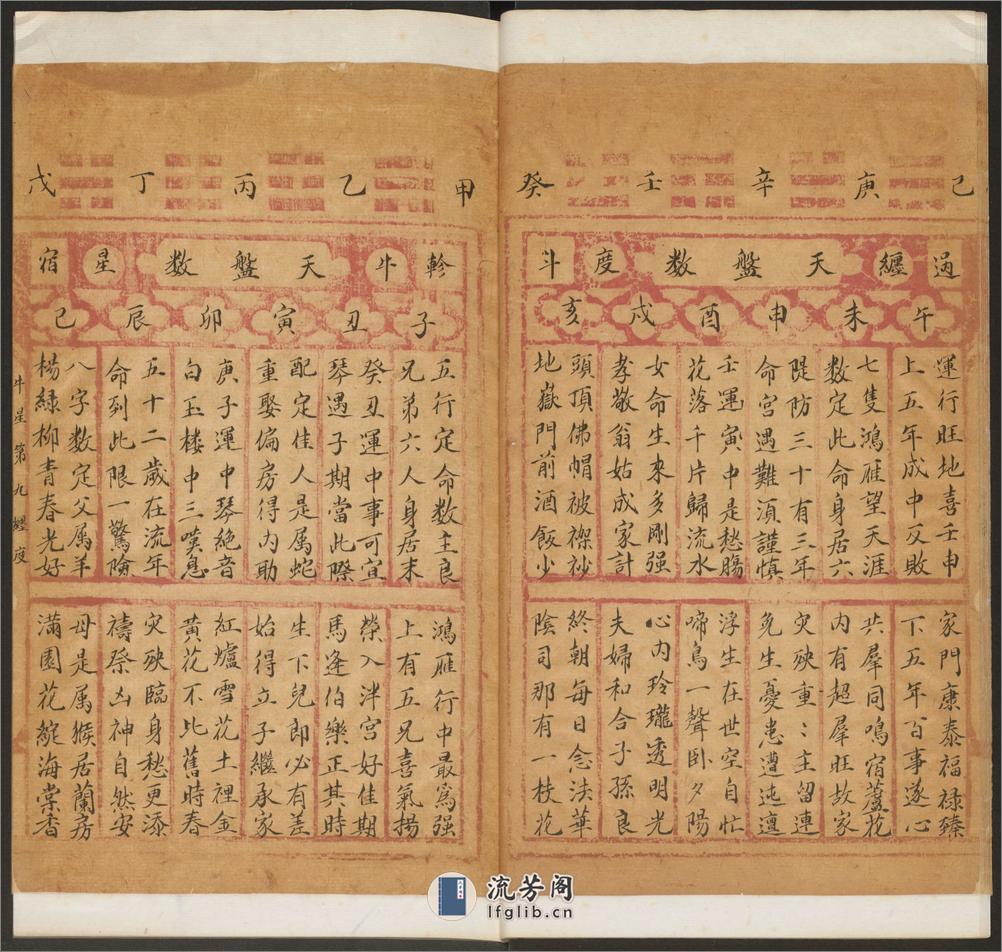 己 庚 辛 壬 癸
過 纏 天盤數 度 斗
午 未 申 酉 戌 亥
運行旺地喜壬申
上五年成中反敗
七隻鴻雁望天涯
数定此命身居六
隄防三十有三年
命宮遇難湏謹慎
壬運寅中是愁腸
花落千片歸流水
女命生來多剛强
孝敬翁姑成家計
頭頂佛帽被襟衫
地嶽門前酒飯少
家門康泰福禄臻
下五年百事遂心
共羣同鳴宿蘆花
内有超羣旺故家
灾殃重〻主留連
免生憂患遭迍邅
浮生在世空自忙
啼鳥一聲卧夕陽
心内玲瓏透明光
夫婦和合子孫良
終朝每日念法華
陰司那有一枝花
甲 乙 丙 丁 戊
軫 牛 天盤数 星 宿
子 丑 寅 卯 辰 巳
五行定命数主良
兄弟六人身居末
癸丑運中事可宜
琴遇子期當此際
配定佳人是属蛇
重娶偏房得内助
庚子運中琴絶音
白玉楼中三嘆息
五十二歲在流年
命列此限一驚險
八字数定父属羊
楊緑柳青春光好
鴻雁行中最爲强
上有五兄喜氣揚
榮入泮宮好佳期
馬逢伯樂正其時
生下兒郎必有差
始得立子繼承家
紅爐雪花土裡金
黄花不比舊時春
灾殃臨身愁更添
禱祭凶神自然安
母是属猴居蘭房
满園花綻海棠香
牛星第九經度
流芳阁
lfglib.cn